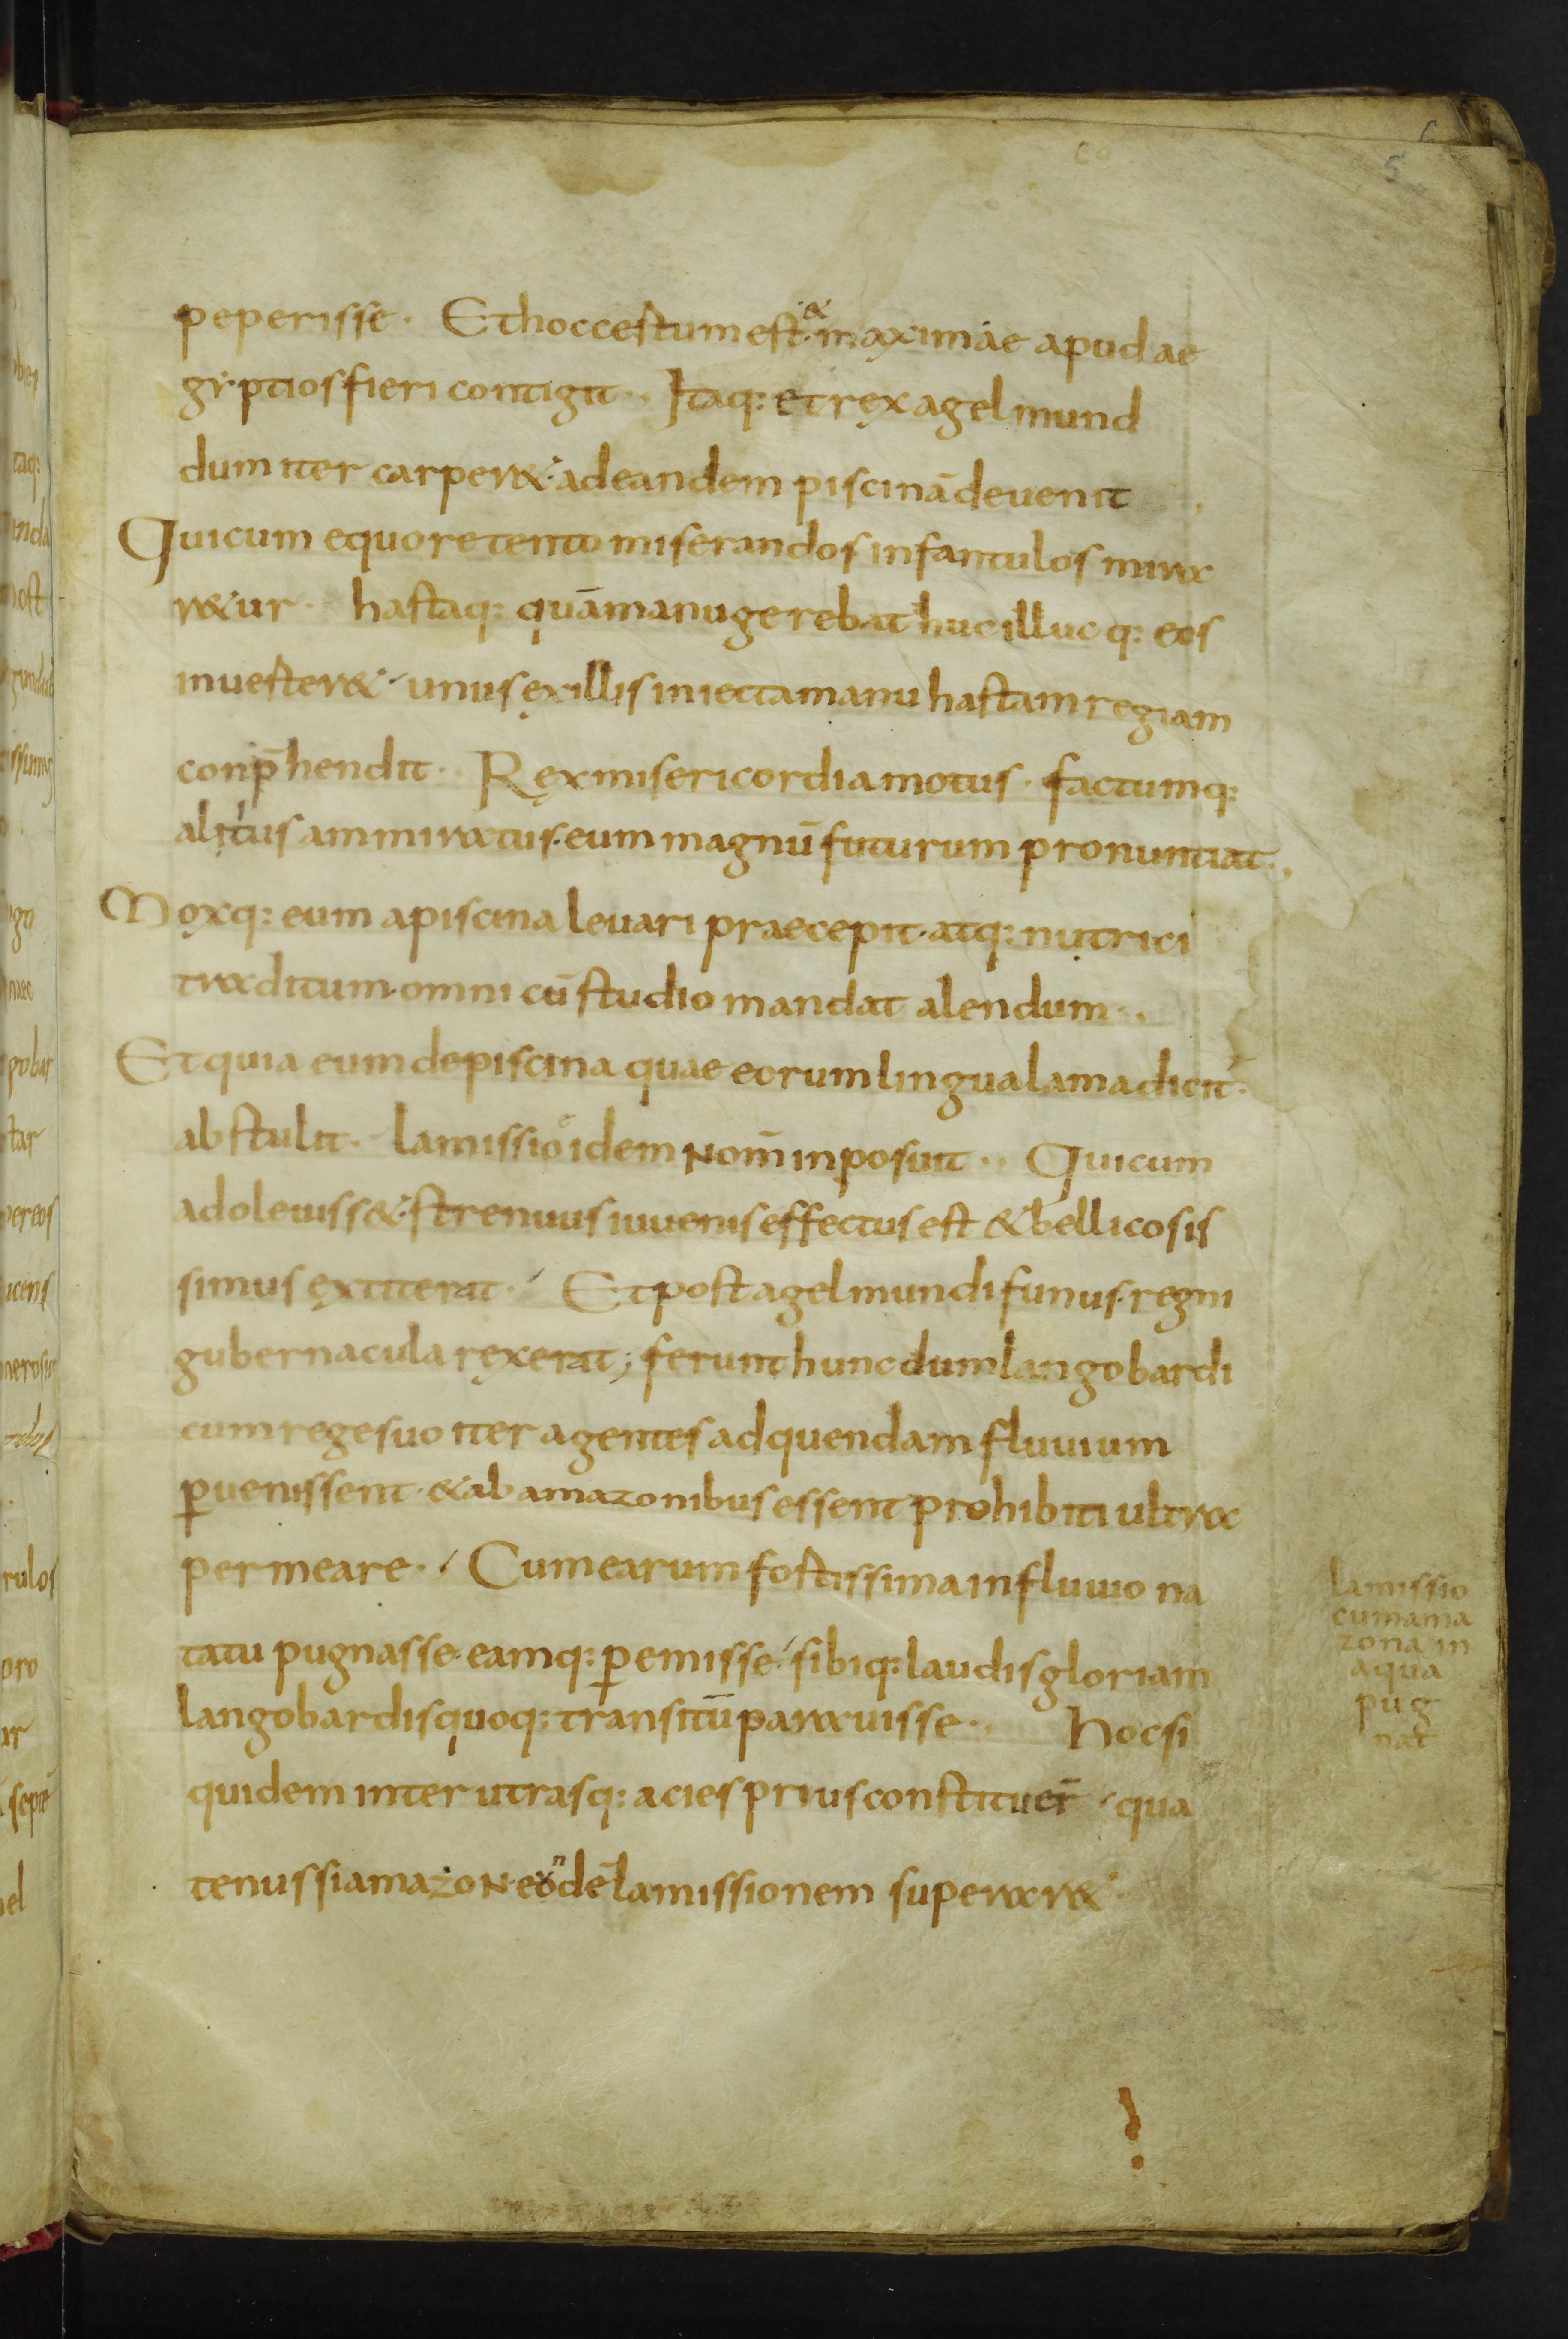 5
peperisse · Et hoc cestum est · & maximae apud ae
gyptios fieri contigit ·, Itaq: et rex agelmund
dum iter carper& · ad eandem piscinā deuenit ·,
Qui cum equo retento miserandos infantulos mira
r&ur · hastaq: quā manu gerebat huc illucq: eos
inuester& · unus ex illis iniecta manu hastam regiam
conp̄hendit · Rex misericordia motus · factumq:
altius ammiratus · eum magnū futurum pronuntiat ·,
Moxq: eum a piscina leuari praecepit · atq: nutrici
traditum · omni cū studio mandat alendum ·,
Et quia eum de piscina quae eorum lingua lama dicit ·
abstulit · lamissio idem nom̄ inposuit · Qui cum
adoleuiss& · strenuus iuuenis effectus est & bellicosis
simus extiterit · Et post agelmundi funus · regni
gubernacula rexerat ; ferunt hunc dum langobardi
cum rege suo iter agentes ad quendam fluuium
p̱uenissent · & ab amazonibus essent prohibiti ultra
permeare · Cum earum fostissima in fluuio na
tatu pugnasse · eamq: p̱emisse · sibiq: laudis gloriam
langobardis quoq: transitū parauisse ·, hoc si
quidem inter utrasq: acies prius constituer̄ · qua
tenus si amazon · eondē lamissionem superar& ·
lamissio
cum ama
zona in
aqua
pug
nat